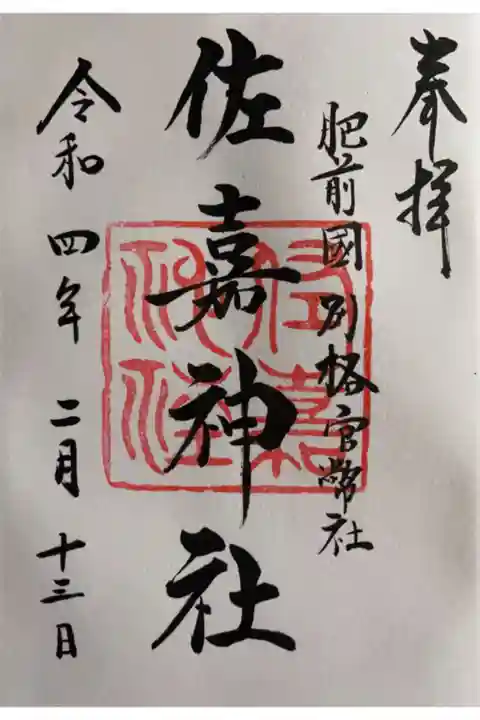 奉拝
肥前國別格官幣社
佐嘉神社
佐嘉
神社
令和四年二月十三日